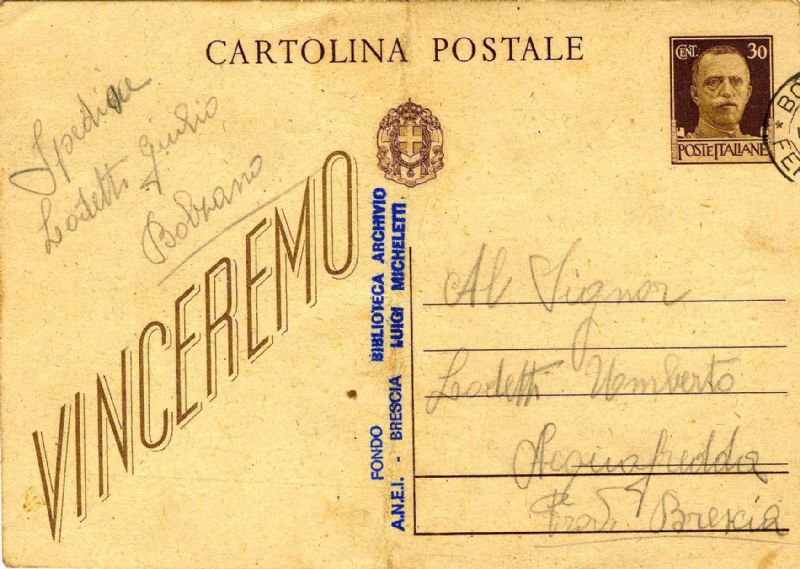 CARTOLINA POSTALE
CENT. 30
POSTE ITALIANE
BO
FE
Spedisce
Lodetti Giulio
Bolzano
VINCEREMO
FONDO BIBLIOTECA ARCHIVIO
A.N.E.I. - BRESCIA LUIGI MICHELETTI
Al Signor
Lodetti Umberto
Acquafredda
Prov. Brescia